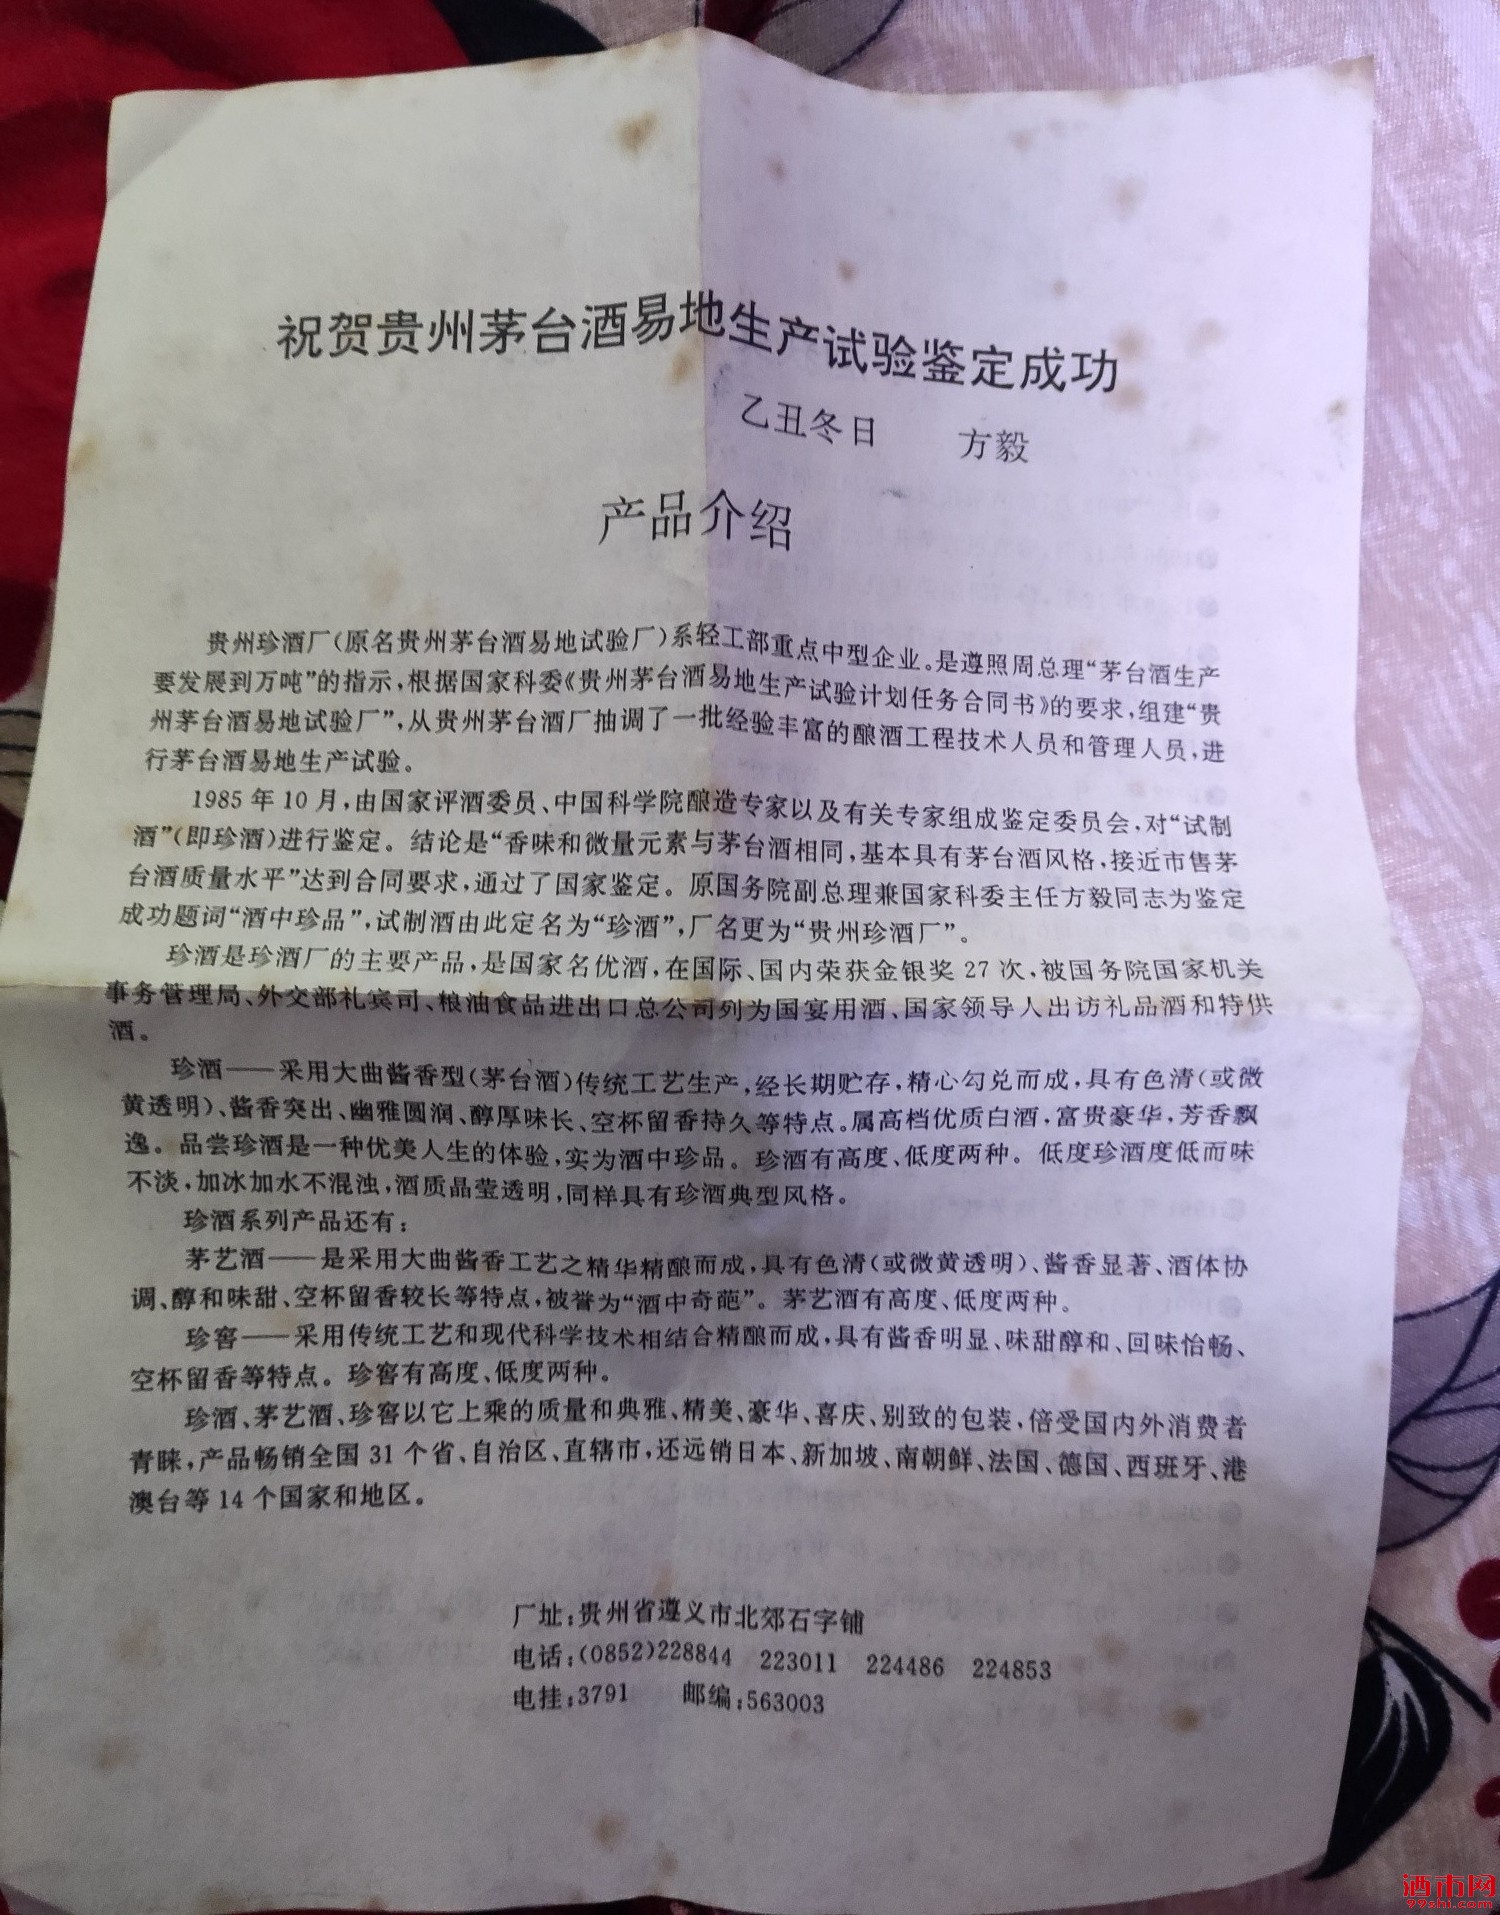 祝贺贵州茅台酒易地生产试验鉴定成功
乙丑冬日 方毅
产品介绍
贵州珍酒厂(原名贵州茅台酒易地试验厂)系轻工部重点中型企业。是遵照周总理“茅台酒生产
要发展到万吨”的指示,根据国家科委《贵州茅台酒易地生产试验计划任务合同书》的要求,组建“贵
州茅台酒易地试验厂”,从贵州茅台酒厂抽调了一批经验丰富的酿酒工程技术人员和管理人员,进
行茅台酒易地生产试验。
1985年10月,由国家评酒委员、中国科学院酿造专家以及有关专家组成鉴定委员会,对“试制
酒”(即珍酒)进行鉴定。结论是“香味和微量元素与茅台酒相同,基本具有茅台酒风格,接近市售茅
台酒质量水平”达到合同要求,通过了国家鉴定。原国务院副总理兼国家科委主任方毅同志为鉴定
成功题词“酒中珍品”,试制酒由此定名为“珍酒”,厂名更为“贵州珍酒厂”。
珍酒是珍酒厂的主要产品,是国家名优酒,在国际、国内荣获金银奖27次,被国务院国家机关
事务管理局、外交部礼宾司、粮油食品进出口总公司列为国宴用酒、国家领导人出访礼品酒和特供
酒。
珍酒——采用大曲酱香型(茅台酒)传统工艺生产,经长期贮存,精心勾兑而成,具有色清(或微
黄透明)、酱香突出、幽雅圆润、醇厚味长、空杯留香持久等特点。属高档优质白酒,富贵豪华,芳香飘
逸。品尝珍酒是一种优美人生的体验,实为酒中珍品。珍酒有高度、低度两种。低度珍酒度低而味
不淡,加冰加水不混浊,酒质晶莹透明,同样具有珍酒典型风格。
珍酒系列产品还有:
茅艺酒——是采用大曲酱香工艺之精华精酿而成,具有色清(或微黄透明)、酱香显著、酒体协
调、醇和味甜、空杯留香较长等特点,被誉为“酒中奇葩”。茅艺酒有高度、低度两种。
珍窖——采用传统工艺和现代科学技术相结合精酿而成,具有酱香明显、味甜醇和、回味怡畅、
空杯留香等特点。珍窖有高度、低度两种。
珍酒、茅艺酒、珍窖以它上乘的质量和典雅、精美、豪华、喜庆、别致的包装,倍受国内外消费者
青睐,产品畅销全国31个省、自治区、直辖市,还远销日本、新加坡、南朝鲜、法国、德国、西班牙、港
澳台等14个国家和地区。
厂址:贵州省遵义市北郊石字铺
电话:(0852)228844 223011 224486 224853
电挂:3791 邮编:563003
酒市网
99shi.com